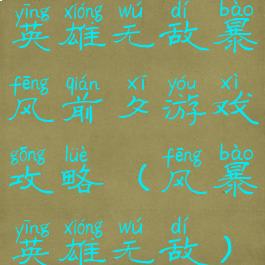 yīng xióng wú dí bào
英雄无敌暴
fēng qián xī yóu xì
风前夕游戏
gōng lüè fēng bào
攻略（风暴
yīng xióng wú dí
英雄无敌）